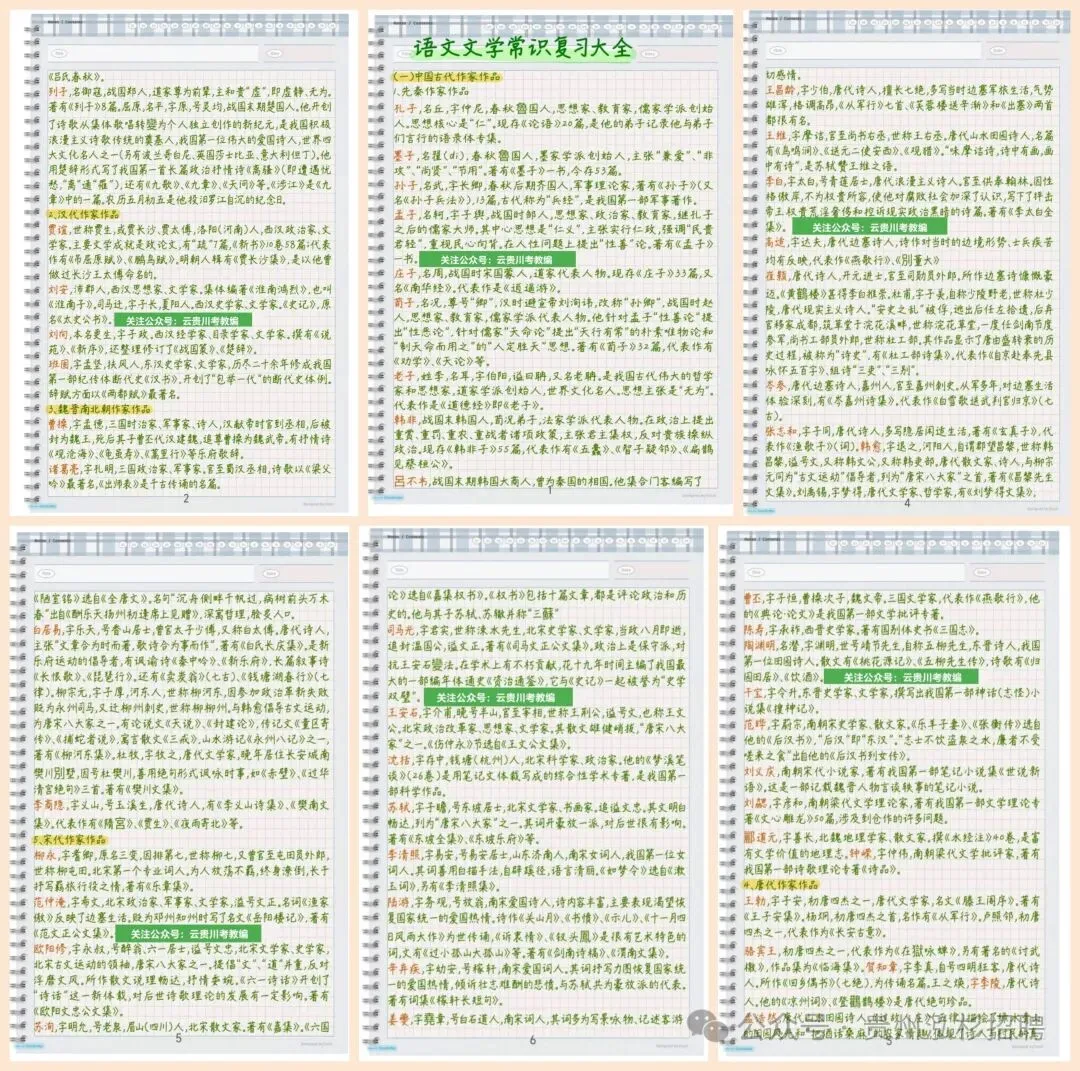 《吕氏春秋》。
列子,名御寇,战国郑人,道家尊为前辈,主和贵“虚”,即虚静、无为。
著有《列子》8篇。屈原,名平,字原,号灵均,战国末期楚国人。他开创
了诗歌从集体歌唱转變为个人独立创作的新纪元,是我国积极
浪漫主义诗歌传统的奠基人,我国第一位伟大的爱国诗人,世界四
大文化名人之一(另有波兰哥白尼、英国莎士比亚、意大利但丁)。他
用楚辞形式写了我国第一首长篇政治抒情诗《离骚》(即遭遇忧
愁,“离”通“罹”),还有《九歌》、《九章》、《天问》等。《涉江》是《九
章》中的一篇。农历五月初五是他投汨罗江自沉的纪念日。
2.汉代作家作品
贾谊,世称贾生,或贾长沙、贾太傅,洛阳(河南)人,西汉政治家、文
学家,主要文学成就是政论文,有“疏”7篇,《新书》10卷58篇;代表
作有《吊屈原赋》、《鵩鸟赋》。明朝人辑有《贾长沙集》,是以他曾
做过长沙王太傅命名的。
刘安,沛郡人,西汉思想家、文学家,集体编著《淮南鸿烈》,也叫
《淮南子》。司马迁,字子长,夏阳人。西汉史学家、文学家。《史记》,原
名《太史公书》。
关注公众号：云贵川考教编
刘向,本名更生,字子政,西汉经学家、目录学家、文学家。撰有《说
苑》、《新序》,还整理修订了《战国策》、《楚辞》。
班固,字孟坚,扶风人,东汉史学家、文学家,历尽二十余年修成我国
第一部纪传体断代史《汉书》,开创了“包举一代”的断代史体例。
辞赋方面以《两都赋》最著名。
3.魏晋南北朝作家作品
曹操,字孟德,三国时治家、军事家、诗人,汉献帝时官到丞相,后被
封为魏王,死后其子曹丕代汉建魏,追尊曹操为魏武帝。有抒情诗
《观沧海》、《龟虽寿》、《蒿里行》等乐府歌辞。
诸葛亮,字孔明,三国政治家、军事家。官至蜀汉丞相,诗歌以《梁父
吟》最著名,《出师表》是千古传诵的名篇。
2
语文文学常识复习大全
(一)中国古代作家作品
1.先秦作家作品
孔子,名丘,字仲尼,春秋魯国人,思想家、教育家,儒家学派创始
人。思想核心是“仁”。现存《论语》20篇,是他的弟子记录他与弟子
们言行的语录体专集。
墨子,名翟(dí),春秋魯国人,墨家学派创始人,主张“兼爱”、“非
攻”、“尚贤”、“节用”。著有《墨子》一书,今存53篇。
孙子,名武,字长卿,春秋后期齐国人,军事理论家,著有《孙子》(又
名《孙子兵法》),13篇,古代称为“兵经”,是我国第一部军事著作。
孟子,名轲,字子舆,战国时邹人,思想家、政治家、教育家,继孔子
之后的儒家大师,其中心思想是“仁义”,主张实行仁政,强调“民贵
君轻”,重视民心向背。在人性问题上提出“性善”论。著有《孟子》
一书。
关注公众号：云贵川考教编
庄子,名周,战国时宋国蒙人,道家代表人物。现存《庄子》33篇,又
名《南华经》。代表作是《逍遥游》。
荀子,名况,尊号“卿”,汉时避宣帝刘询讳,改称“孙卿”,战国时赵
人,思想家、教育家,儒家学派代表人物。他针对孟子“性善论”提
出“性恶论”,针对儒家“天命论”提出“天行有常”的朴素唯物论和
“制天命而用之”的“人定胜天”思想。著有《荀子》32篇,代表作有
《劝学》、《天论》等。
老子,姓李,名耳,字伯阳,谥曰聃,又名老聃。是我国古代伟大的哲学
家和思想家,道家学派创始人,世界文化名人,思想主张是“无为”。
代表作是《道德经》即《老子》。
韩非,战国末韩国人,荀况弟子,法家学派代表人物。在政治上提出
重赏、重罚、重农、重战者诸项政策,主张君主集权,反对贵族操纵
政治。现存《韩非子》55篇,代表作有《五蠹》、《智子疑邻》、《扁鹊
见蔡桓公》。
吕不韦,战国末期韩国大商人,曾为秦国的相国。他集合门客编写了
1
切感情。
王昌龄,字少伯,唐代诗人,擅长七绝,多写当时边塞军旅生活,气势
雄浑,格调高昂。《从军行》七首、《芙蓉楼送辛渐》和《出塞》两首
都很有名。
王维,字摩诘,官至尚书右丞,世称王右丞。唐代山水田园诗人,名篇
有《鸟鸣涧》、《送元二使安西》、《观猎》。“味摩诘诗,诗中有画,画
中有诗”,是苏轼赞王维之语。
李白,字太白,号青莲居士,唐代浪漫主义诗人。官至供奉翰林。因性
格傲岸,不为权贵所容,使他对腐败社会加深了认识,写下了抨击
帝王权贵荒淫奢侈和控诉现实政治黑暗的诗篇。著有《李太白全
集》。
关注公众号：云贵川考教编
高适,字达夫,唐代边塞诗人,诗作对当时的边境形势、士兵疾苦
均有反映,代表作《燕歌行》、《別董大》
崔颢,唐代诗人,开元进士,官至司勋员外郎。所作边塞诗慷慨豪
迈。《黄鹤楼》甚得李白推崇。杜甫,字子美,自称少陵野老,世称杜少
陵,唐代现实主义诗人。“安史之乱”被俘,逃出后任左拾遗,后弃
官移家成都,筑草堂于浣花溪畔,世称浣花草堂,一度任剑南节度
参军,尚书工部员外郎,世称杜工部。其作品显示了唐由盛转衰的历
史过程,被称为“诗史”,有《杜工部诗集》。代表作《自京赴奉先县
咏怀五百字》,组诗“三吏”、“三别”。
岑参,唐代边塞诗人,嘉州人,官至嘉州刺史。从军多年,对边塞生活
体验深刻,有《岑嘉州诗集》。代表作《白雪歌送武判官归京》(七
古)。
张志和,字子同,唐代诗人,多写隐居闲适生活。著有《玄真子》,代
表作《渔歌子》(词)。韩愈,字退之,河阳人,自谓郡望昌黎,世称韩
昌黎,谥号文,又称韩文公,又称韩吏部。唐代散文家、诗人,与柳宗
元同为“古文运动”倡导者,列为“唐宋八大家”之首,著有《昌黎先生
文集》。刘禹锡,字梦得,唐代文学家、哲学家,有《刘梦得文集》。
4
《陋室铭》选自《全唐文》。名句“沉舟侧畔千帆过,病树前头万木
春”出自《酬乐天扬州初逢席上见赠》,深寓哲理,脍炙人口。
白居易,字乐天,号香山居士,曾官太子少傅,又称白太傅,唐代诗人,
主张“文章合为时而著,歌诗合为事而作”。著有《白氏长庆集》。是新
乐府运动的倡导者,有讽谕诗《秦中吟》、《新乐府》,长篇叙事诗
《长恨歌》、《琵琶行》。还有《卖炭翁》(七古)、《钱塘湖春行》(七
律)。柳宗元,字子厚,河东人,世称柳河东,因参加政治革新失败
贬为永州司马,又迁柳州刺史,世称柳柳州。与韩愈倡导古文运动,
为唐宋八大家之一。有论说文《天说》、《封建论》,传记文《童区寄
传》、《捕蛇者说》,寓言散文《三戒》,山水游记《永州八记》之一,
著有《柳河东集》。杜牧,字牧之,唐代文学家,晚年居住长安城南
樊川別墅,因号杜樊川,善用绝句形式讽咏时事,如《赤壁》、《过华
清宫绝句》三首。著有《樊川文集》。
李商隐,字义山,号玉溪生,唐代诗人,有《李义山诗集》、《樊南文
集》,代表作有《隋宮》、《贾生》、《夜雨寄北》等。
5.宋代作家作品
柳永,字耆卿,原名三变,因排第七,世称柳七,又曾官至屯田员外郎,
世称柳屯田,北宋第一个专业词人,为人放荡不羁,终身潦倒,长于
抒写羁旅行役之情,著有《乐章集》。
范仲淹,字希文,北宋政治家、军事家、文学家,谥文正。名词《渔家
傲》反映了边塞生活。贬为邓州知州时写了名文《岳阳楼记》,著有
《范文正公文集》。
关注公众号：云贵川考教编
欧阳修,字永叔,号醉翁、六一居士,谥号文忠,北宋文学家、史学家,
北宋古文运动的领袖,唐宋八大家之一。提倡“文”、“道”并重,反对
浮靡文风,所作散文说理畅达,抒情委婉。《六一诗话》开创了
“诗话”这一新体裁,对后世诗歌理论的发展有一定影响。著有
《欧阳文忠公文集》。
苏洵,字明允,号老泉,眉山(四川)人,北宋散文家,著有《嘉集》。《六国
5
论》选自《嘉集权书》。《权书》包括十篇文章,都是评论政治和历
史的。他与其子苏轼、苏辙并称“三蘇”
司马光,字君实,世称涑水先生,北宋史学家、文学家,当政八月即逝,
追封温国公,谥文正。著有《司马文正公文集》。政治上是保守派,对
抗王安石變法。在学术上有不朽贡献,花十九年时间主编了我国最
大的一部编年体通史《资治通鉴》,它与《史记》一起被誉为“史学
双璧”。
关注公众号：云贵川考教编
王安石,字介甫,晚号半山,官至宰相,世称王荆公,谥号文,也称王文
公。北宋政治改革家、思想家、文学家。其散文雄健峭拔,“唐宋八大
家”之一。《伤仲永》节选自《王文公文集》。
沈括,字存中,钱塘(杭州)人,北宋科学家、政治家,他的《梦溪笔
谈》(26卷)是用笔记文体裁写成的综合性学术专著,是我国第一
部科学作品。
苏轼,字子瞻,号东坡居士,北宋文学家、书画家。追谥文忠。其文明白
畅达,列为“唐宋八大家”之一。其词开豪放一派,对后世很有影响。
著有《东坡全集》、《东坡乐府》等。
李清照,字易安,号易安居士,山东济南人,南宋女词人,我国第一位女
词人。其词善用白描手法,自辟蹊径,语言清丽。《如梦令》选自《漱
玉词》,另有《李清照集》。
陆游,字务观,号放翁,南宋爱国诗人,诗内容丰富,主要表现渴望恢
复国家统一的爱国热情。诗作《关山月》、《书愤》、《示儿》、《十一月四
日风雨大作》为世传诵,《诉衷情》、《钗头鳳》是很有艺术特色的
词,文有《过小孤山大孤山》等。著有《剑南诗稿》、《渭南文集》。
辛弃疾,字幼安,号稼轩,南宋爱国词人。其词抒写力图恢复国家统
一的爱国热情,倾诉壮志难酬的悲愤。与苏轼共为豪放派的代表。
著有词集《稼轩长短句》。
姜夔,字堯章,号白石道人,南宋词人,其词多为写景咏物、记述客游
6
曹丕,字子恒,曹操次子,魏文帝,三国文学家,代表作《燕歌行》,他
的《典论·论文》是我国第一部文学批评专著。
陈寿,字承祚,西晋史学家,著有国别体史书《三国志》。
陶渊明,名潜,字渊明,世号靖节先生,自称五柳先生,东晋诗人,我国
第一位田园诗人,散文有《桃花源记》、《五柳先生传》,诗歌有《归
园田居》、《饮酒》。
关注公众号：云贵川考教编
干宝,字令升,东晋史学家、文学家,撰写出我国第一部神话(志怪)小
说集《搜神记》。
范晔,字蔚宗,南朝宋史学家、散文家。《乐羊子妻》、《张衡传》选自
他的《后汉书》,“后汉”即“东汉”。“志士不饮盗泉之水,廉者不受
嗟来之食”出自他的《后汉书列女传》。
刘义庆,南朝宋代小说家,著有我国第一部笔记小说集《世说新
语》。这是一部记载魏晋人物言谈轶事的笔记小说。
刘勰,字彦和,南朝梁代文学理论家,著有我国第一部文学理论专
著《文心雕龙》50篇,涉及到创作的许多问题。
郦道元,字善长,北魏地理学家、散文家,撰《水经注》40卷,是富
有文学价值的地理志。钟嵘,字仲伟,南朝梁代文学批评家,著有
我国第一部诗歌理论专著《诗品》。
4.唐代作家作品
王勃,字子安,初唐四杰之一,唐代文学家,名文《滕王阁序》。著有
《王子安集》。杨炯,初唐四杰之首,名作有《从军行》。卢照邻,初唐
四杰之一,代表作为《长安古意》。
骆宾王,初唐四杰之一,代表作为《在獄咏蝉》,另有著名的《讨武
檄》,作品集为《临海集》。贺知章,字季真,自号四明狂客,唐代诗
人,所作《回乡偶书》(七绝),为传诵名篇。王之焕,字季陵,唐代诗
人,他的《凉州词》、《登鸛鹤楼》是唐代绝句珍品。
公众号·贵州